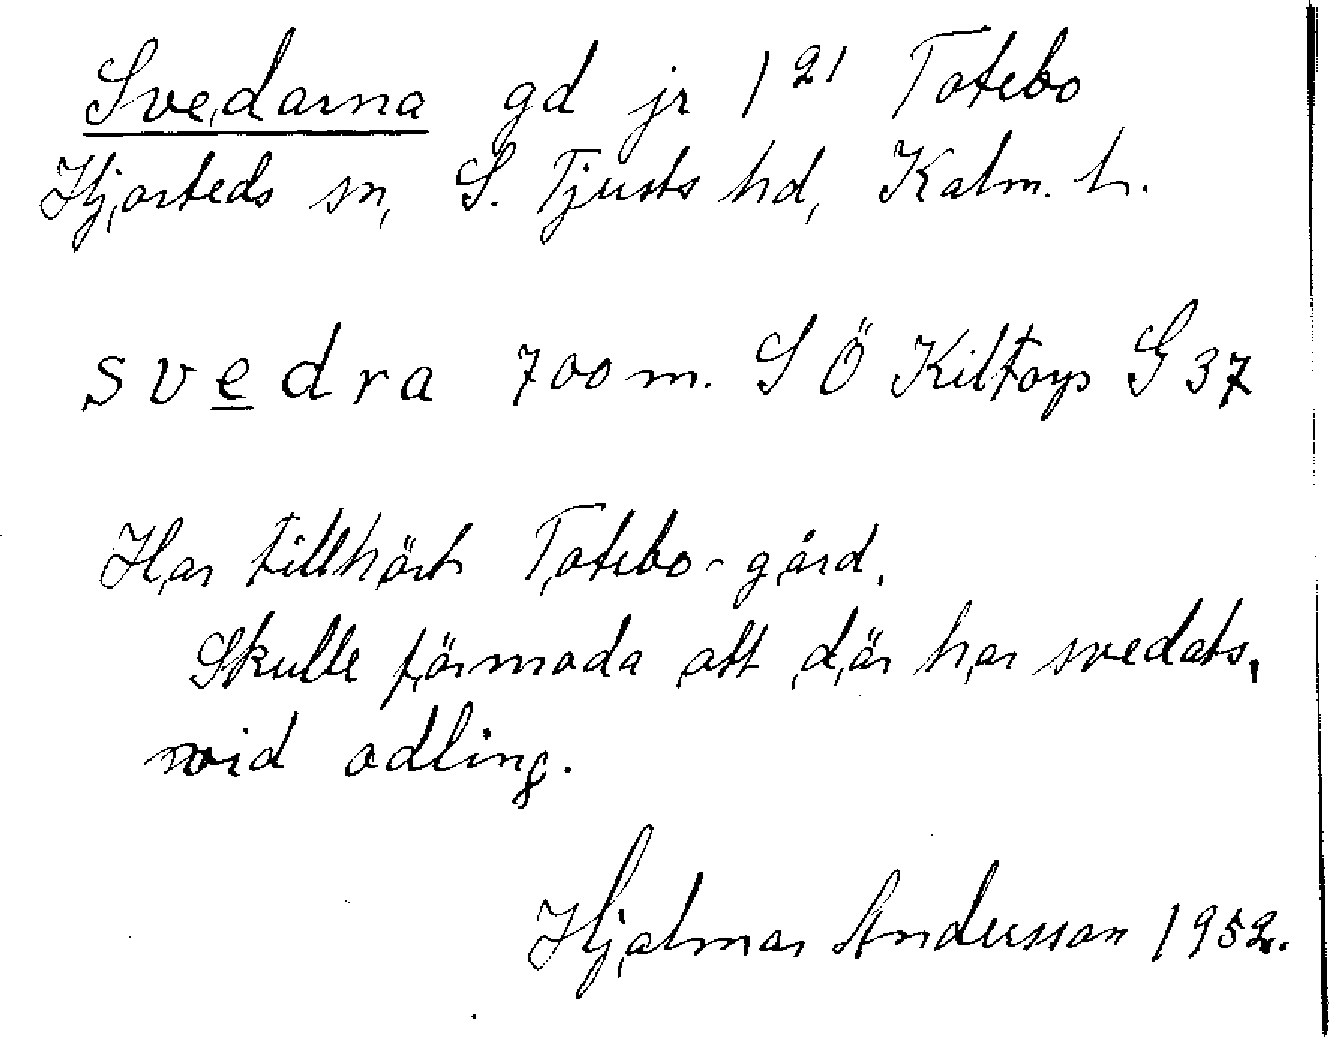 Svedarna gd jr 1²¹ Totebo
Hjorteds sn, S. Tjusts hd, Kalm. l.
svedra 700 m. S Ö Kiltorp G 37
Har tillhört Totebo-gård.
Skulle förmoda att där har svedats,
vid odling.
Hjalmar Andersson 1952.